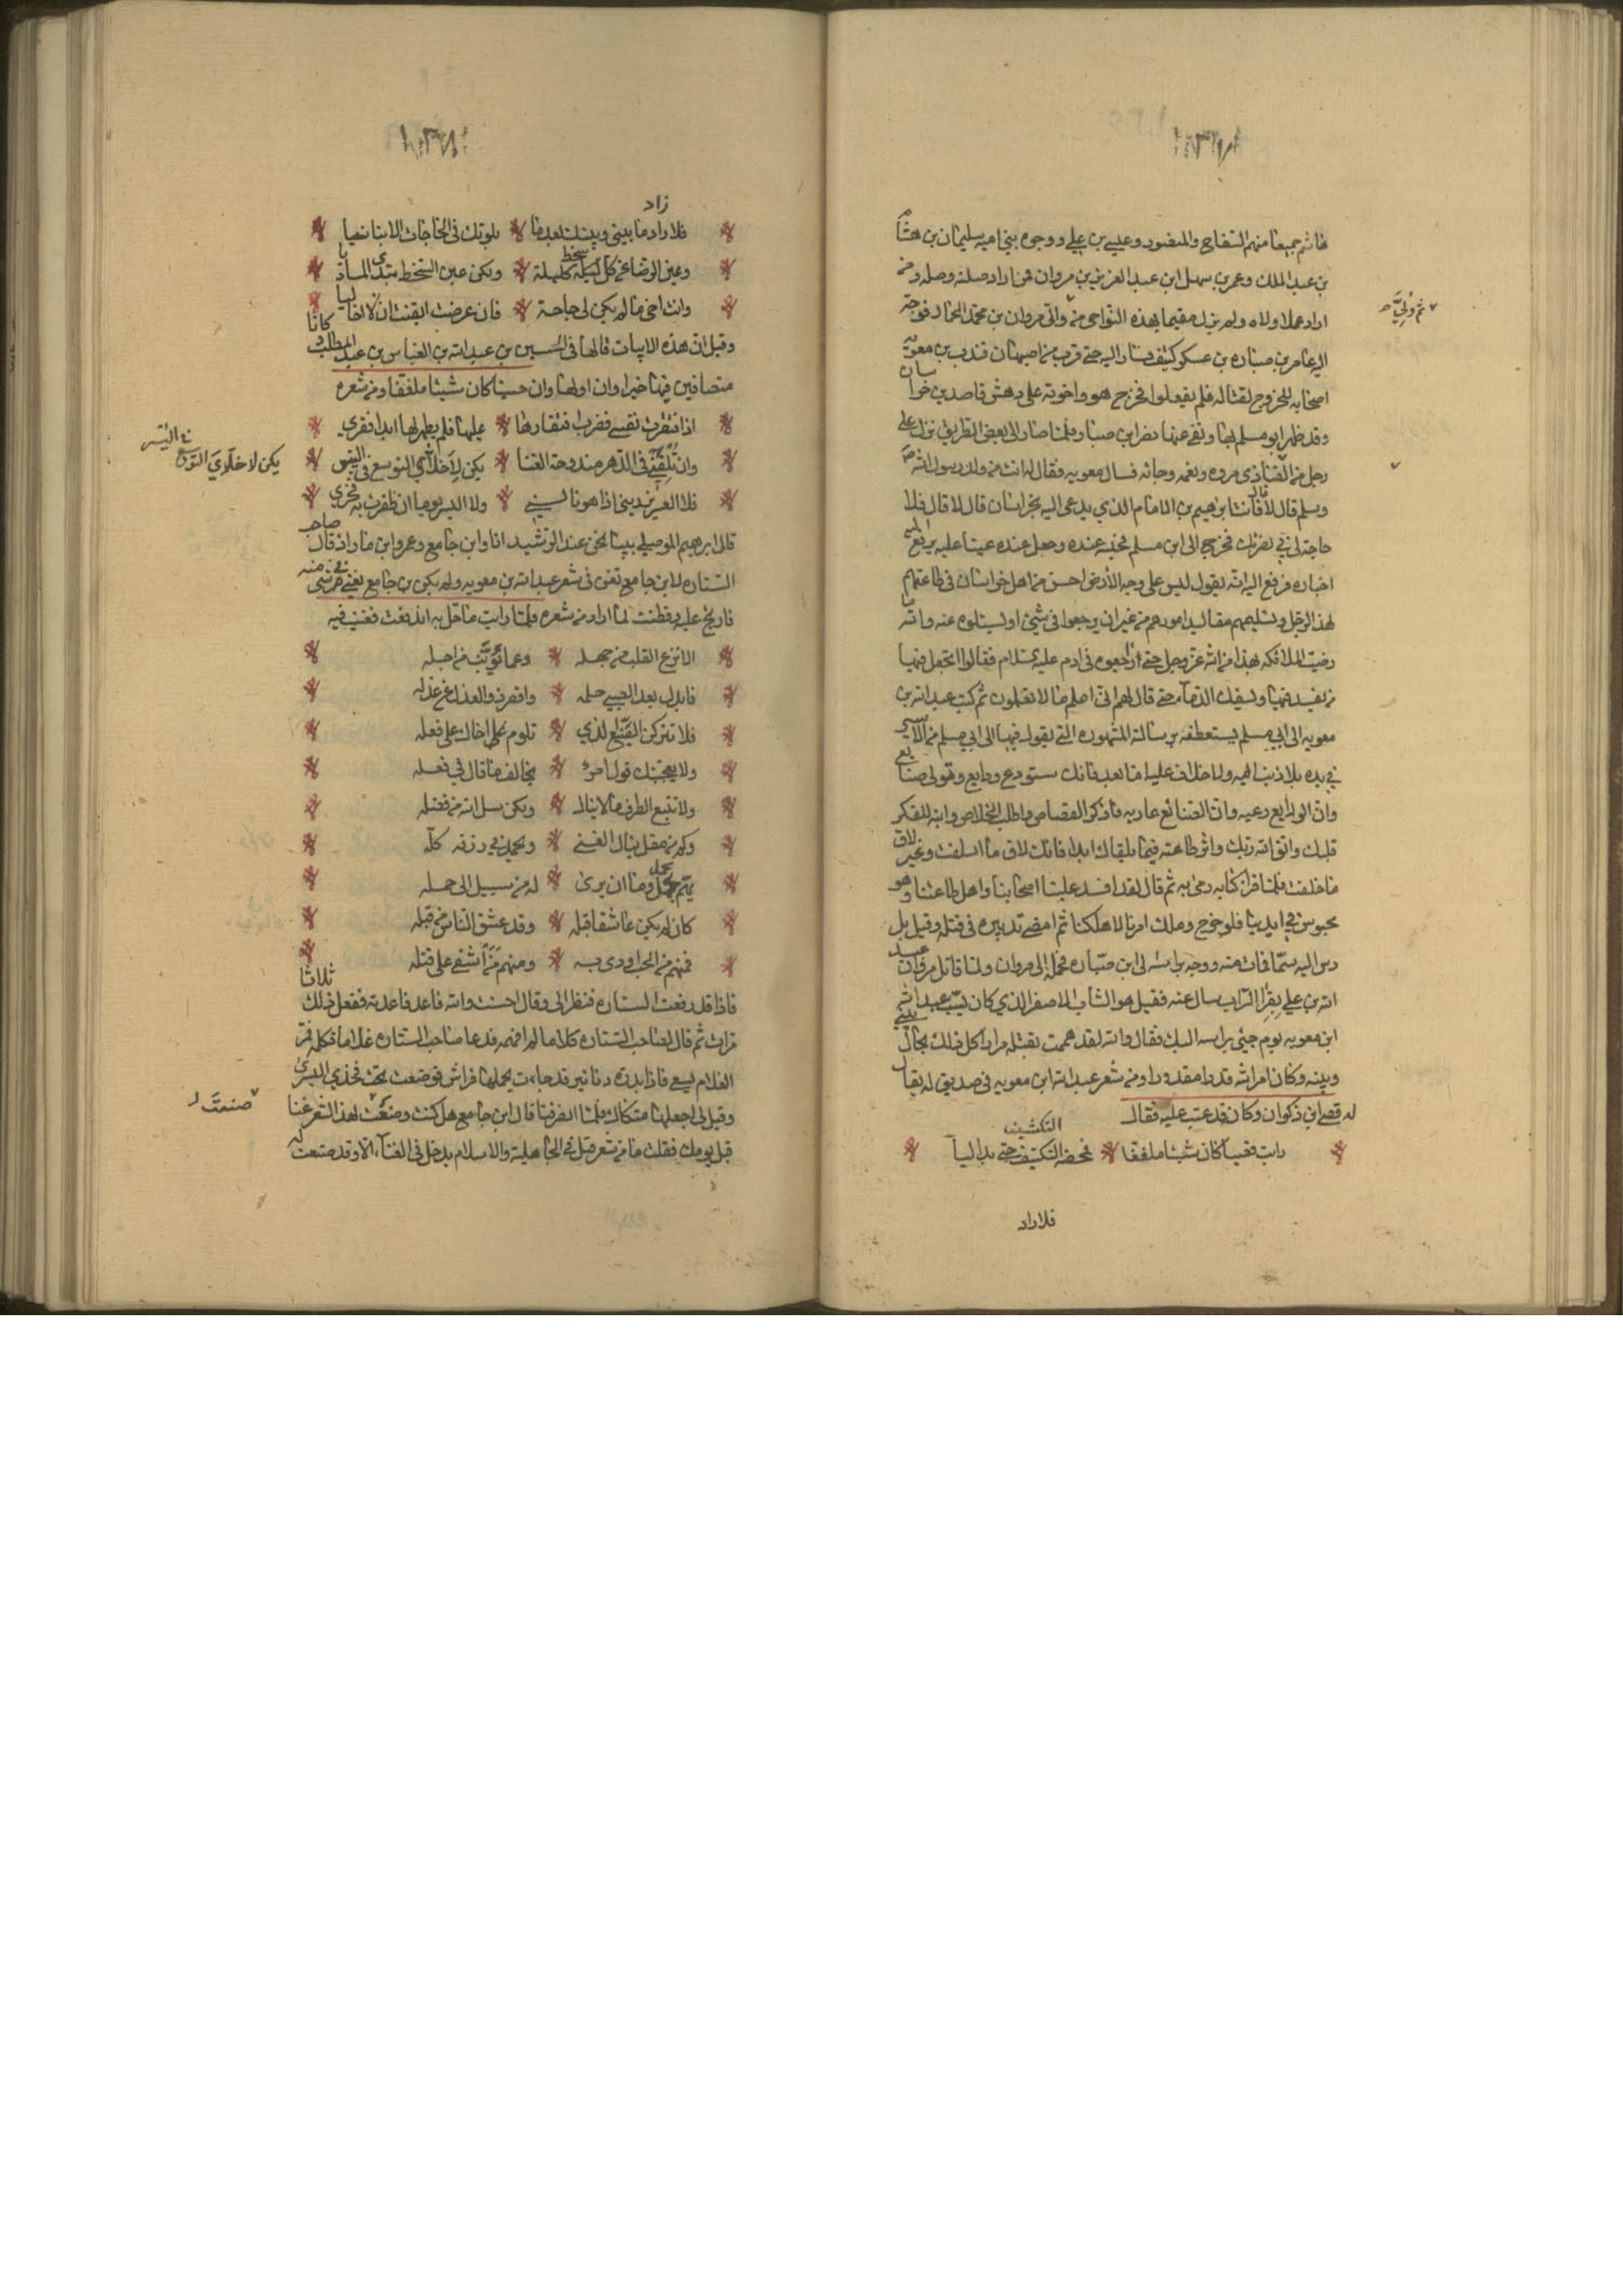 هاشم جميعا منهم السفاح والمنصور وعيسى بن علي ووجوه بني اميه سليمان بن هشام
بن عبد الملك وعمر بن سهيل ابن عبد العزيز بن مروان فمن اراد صلته وصله ومن
اراد عملا ولاه ولم يزل مقيما بهذه النواحي من واتى مروان بن محمد الحمار فوجه
ثم ولي
اليه عامر بن صباره بن عسكر كثيف فسار اليه حتى قرب من اصبهان فندب بن معويه
اصحابه للخروج لقتاله فلم يفعلوا فخرج هو واخوته على دهش قاصدين خراسان
وقد ظهر ابو مسلم بها ونفى عنها نصر ابن صبار فلما صار الى بعض الطريق نزل على
رجل من التناء ذى مروه ونعمه وجاه فسال معويه فقال له انت من ولد رسول الله ص
وسلم قال لا قال فانت ابرهيم بن الامام الذي يدعى اليه بخراسان قال لا قال فلا
حاجة لي في نصرتك فخرج الى ابن مسلم فحبسه عنده وجعل عنده عينا عليه يرفع اليه
اخباره فرفع اليه انه يقول ليس على وجه الأرض احمق من اهل خراسان في طاعتهم
لهذا الرجل وتسليمهم مقاليد امورهم من غير ان يرجعوا في شئ او يسئلوه عنه والله ما
رضيت الملائكه بهذا من الله عز وجل حتى راجعوه في ادم عليه السلام فقالوا اتجعل فيها
من يفسد فيها ويسفك الدمآء حتى قال لهم اني اعلم ما لا تعلمون ثم كتب عبد الله بن
معويه الى ابي مسلم يستعطفه برسالته المشهوره التي يقول فيها الى ابي مسلم من الاسير
في يده بلا ذنب اليه ولا خلاف عليه اما بعد فانك مستودع ودايع ومولى صنايع
وان الودايع رعيه وان الصنائع عاريه فاذكر القصاص واطلب الخلاص وانبه للفكر
قلبك واتق الله ربك واثر طاعته فيما يلقاك ابدا فانك لاق ما اسلفت وغير لاق
ما خلفت فلما قرا كتابه رمى به ثم قال لقد افسد علينا اصحابنا واهل طاعتنا وهو
محبوس في ايدينا فلو خرج وملك امرنا لاهلكنا ثم امضى تدبيره في قتله وقيل بل
دس اليه سمّا فمات منه ووجه براسه الى ابن صبّاره فحمله الى مروان ولما قاتل مروان عبد
الله بن علي بقرا الزاب سال عنه فقيل هو الشاب الاصفر الذي كان يسب عبد الله
ابن معويه يوم جيئ براسه اليك فقال والله لقد هممت بقتله مرارا كل ذلك يحال بيني
وبينه وكان امر الله قدرا مقدورا ومن شعر عبد الله ابن معويه في صديق له يقال
له قصي ابن ذكوان وكان قد عتب عليه فقال
التكشيف
رايت قصيا كان شيئا ملففا فمحضه التكشيف حتى بدا ليا
فلا زاد
زاد
فلا زاد ما بيني وبينك بعدما بلوتك في الحاجات الا تنائيا
وعين الرضا عن كل سخط كليلة ولكن عين السخط تبدي المساويا
وانت اخي ما لم يكن لي حاجة فان عرضت ايقنت ان لا اخا ليا
وقيل ان هذه الابيات قالها في الحسين بن عبد الله بن العباس بن عبد المطلب وكانا
متصافين فيها خيرا وان اولها وان حسينا كان شيئا ملففا ومن شعره
اذا افتقرت نفسي قصرت افتقارها عليها فلم يظهر لها ابدا فقري
وان تلقني في الدهر مندوحة الغنا يكن لأخلآئي التوسع في اليسر
يكن لاخلآئي التوسع في اليسر
فلا العسر يزريني اذا هو نالني ولا اليسر يوما ان ظفرت به فخري
قال ابرهيم الموصلي بينا نحن عند الرشيد انا وابن جامع وعمرو ابن ما راد قال صاحب
الستاره لابن جامع تغن في شعر عبد الله بن معويه ولم يكن بن جامع يغني في شئ منه
فارتج عليه وفطنت لما اراد من شعره فلما رايت ما حل به اندفعت فغنيت فيه
الا نزع القلب من جهله وعما تؤنب من اجله
فابدل بعد الصبي حلمه واقصر ذو العذل عن عذله
فلا تتركن الصنيع الذي تلوم على اخاك على فعله
ولا يعجبنك قول امرئ يخالف ما قال في فعله
ولا تتبع الطرف ما لا ينال ولكن سل الله من فضله
وكم من مقل ينال الغنى ويحمد في رزقه كله
له من سبيل الى جمله
كان لم يكن عاشقا قبله وقد عشق الناس من قبله
فمنهم من الحب اودى به ومنهم من اشفى على قتله
فاذا قد رفعت الستاره فنظر الي وقال احسنت والله فاعد فاعدته ففعل ذلك ثلاثا
مرات ثم قال لصاحب الستاره كلاما لم افهمه فدعا صاحب الستاره غلاما فكلمه فمر
الغلام يسعى فاذا بدره دنانير قد جاءت يحملها فراش فوضعت تحت فخذي اليسرى
وقيل لي اجعلها متكاك فلما انصرفنا قال ابن جامع هل كنت وضعت لهذا الشعر غنا
صنعت
قبل يومك فقلت ما من شعر قيل في الجاهلية والاسلام يدخل في الغنآء الا وقد صنعت له